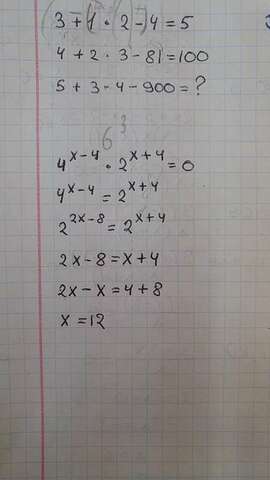 3 + 1 · 2 - 4 = 5
4 + 2 · 3 - 81 = 100
5 + 3 - 4 - 900 = ?
6³
4^(x-4) · 2^(x+4) = 0
4^(x-4) = 2^(x+4)
2^(2x-8) = 2^(x+4)
2x - 8 = x + 4
2x - x = 4 + 8
x = 12